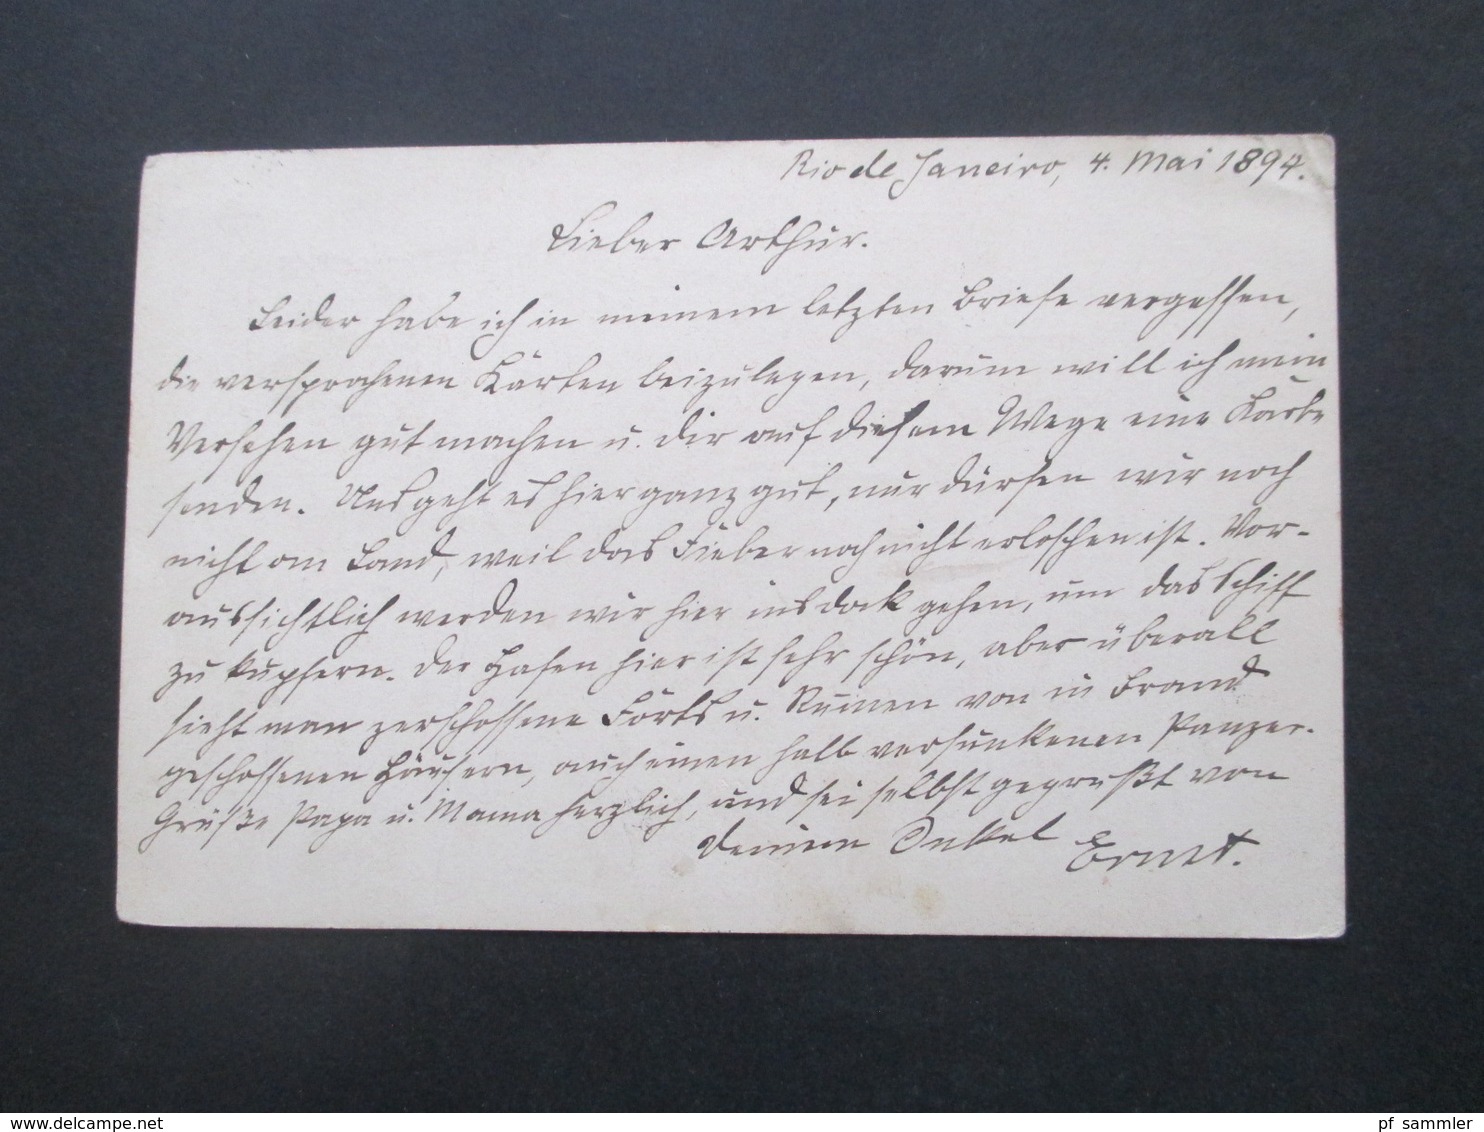 Rio de Janeiro, 4. Mai 1894.
Lieber Arthur.
Leider habe ich in meinem letzten Briefe vergessen,
die versprochenen Karten beizulegen, darum will ich mein
Versehen gut machen u. dir auf diesem Wege eine Karte
senden. Uns geht es hier ganz gut, nur dürfen wir noch
nicht an Land, weil das Fieber noch nicht erloschen ist. Vor-
aussichtlich werden wir hier ins Dock gehen, um das Schiff
zu kupfern. Der Hafen hier ist sehr schön, aber überall
sieht man zerschossene Forts u. Ruinen von in Brand
geschossenen Häusern, auch einen halb versunkenen Panzer.
Grüße Papa u. Mama herzlich, und sei selbst gegrüßt von
deinem Onkel Ernst.
pf_sammler
www.delcampe.net